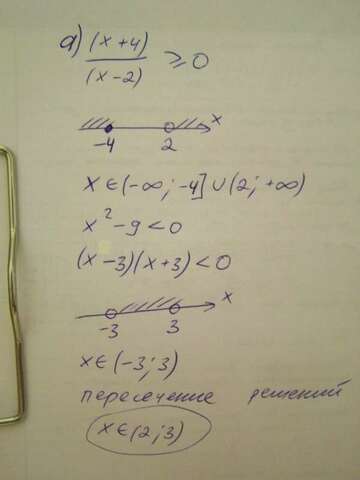 а) (x+4)
(x-2) ≥0
x
-4 2
x∈(-∞; -4] ∪ (2; +∞)
x²-9<0
(x-3)(x+3)<0
x
-3 3
x∈(-3;3)
пересечение решений
x∈(2;3)